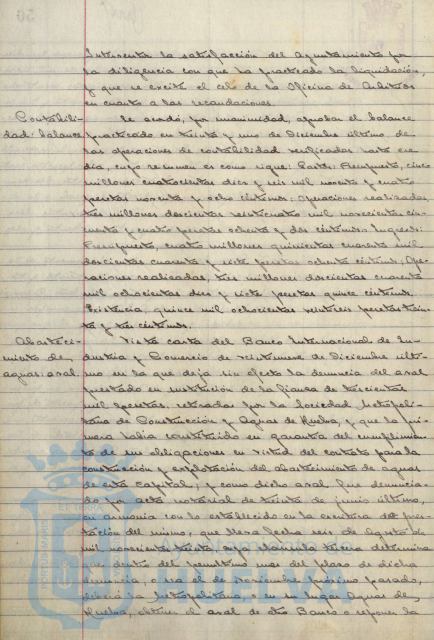 Interventor la satisfacción del Ayuntamiento por
la diligencia con que ha practicado la liquidación,
y que se excite el celo de la Oficina de Arbitrios
en cuanto a las recaudaciones.
Contabili-
dad: balance
Se acordó, por unanimidad, aprobar el balance
practicado en treinta y uno de Diciembre último de
las operaciones de contabilidad verificadas hasta ese
día, cuyo resumen es como sigue: Gastos: Presupuesto, cinco
millones cuatrocientas diez y seis mil noventa y cuatro
pesetas noventa y ocho céntimos; Operaciones realizadas,
tres millones doscientas veinticuatro mil novecientas cin-
cuenta y cuatro pesetas ochenta y dos céntimos. Ingresos:
Presupuesto, cuatro millones quinientas cuarenta mil
doscientas cuarenta y siete pesetas ochenta céntimos; Ope-
raciones realizadas, tres millones doscientas cuarenta
mil ochocientas diez y siete pesetas quince céntimos.
Existencia, quince mil ochocientas pesetas trein-
ta y tres céntimos.
Abasteci-
miento de
aguas: aval.
Vista carta del Banco Internacional de In-
dustria y Comercio de de Diciembre últi-
mo en la que deja sin efecto la denuncia del aval
prestado en sustitución de la fianza de trescientas
mil pesetas, retiradas por la Sociedad Metropoli-
tana de Construcción y Aguas de Huelva, y que la pri-
mera había constituido en garantía del cumplimien-
to de sus obligaciones en virtud del contrato para la
construcción y explotación del abastecimiento de aguas
de esta capital; y como dicho aval fue denuncia-
do por acta notarial de treinta de junio último,
en armonía con lo establecido en la escritura de pres-
tación del mismo, que lleva fecha seis de Agosto de
mil novecientos treinta, cuya cláusula tercera determina
que dentro del penúltimo mes del plazo de dicha
denuncia, o sea el de Noviembre próximo pasado,
debería la Metropolitana, o en su lugar Aguas de
Huelva, obtener el aval de otro Banco o reponer la